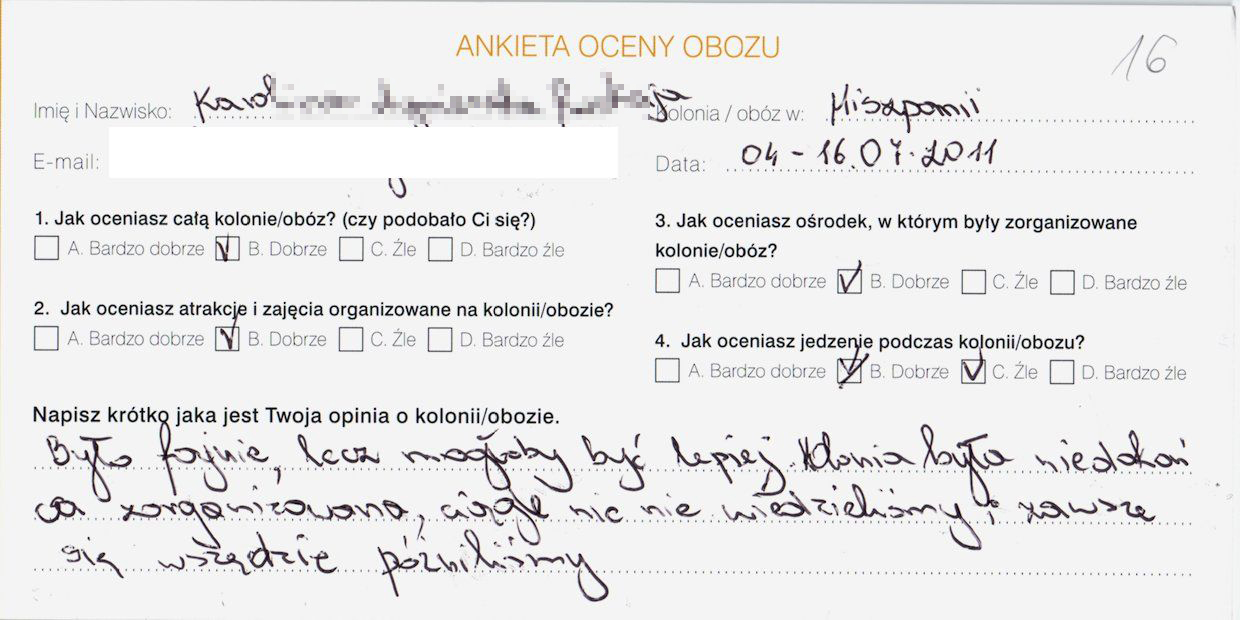 ANKIETA OCENY OBOZU
16
Imię i Nazwisko:
Kolonia / obóz w: Hiszpanii
E-mail:
Data: 04 - 16.07.2011
1. Jak oceniasz całą kolonie/obóz? (czy podobało Ci się?)
A. Bardzo dobrze V B. Dobrze C. Źle D. Bardzo źle
2. Jak oceniasz atrakcje i zajęcia organizowane na kolonii/obozie?
A. Bardzo dobrze V B. Dobrze C. Źle D. Bardzo źle
3. Jak oceniasz ośrodek, w którym były zorganizowane
kolonie/obóz?
A. Bardzo dobrze V B. Dobrze C. Źle D. Bardzo źle
4. Jak oceniasz jedzenie podczas kolonii/obozu?
A. Bardzo dobrze V B. Dobrze V C. Źle D. Bardzo źle
Napisz krótko jaka jest Twoja opinia o kolonii/obozie.
Było fajnie, lecz mogłoby być lepiej. Kolonia była niedokoń
ca zorganizowana, ciągle nic nie wiedzieliśmy i zawsze
się wszędzie późniliśmy